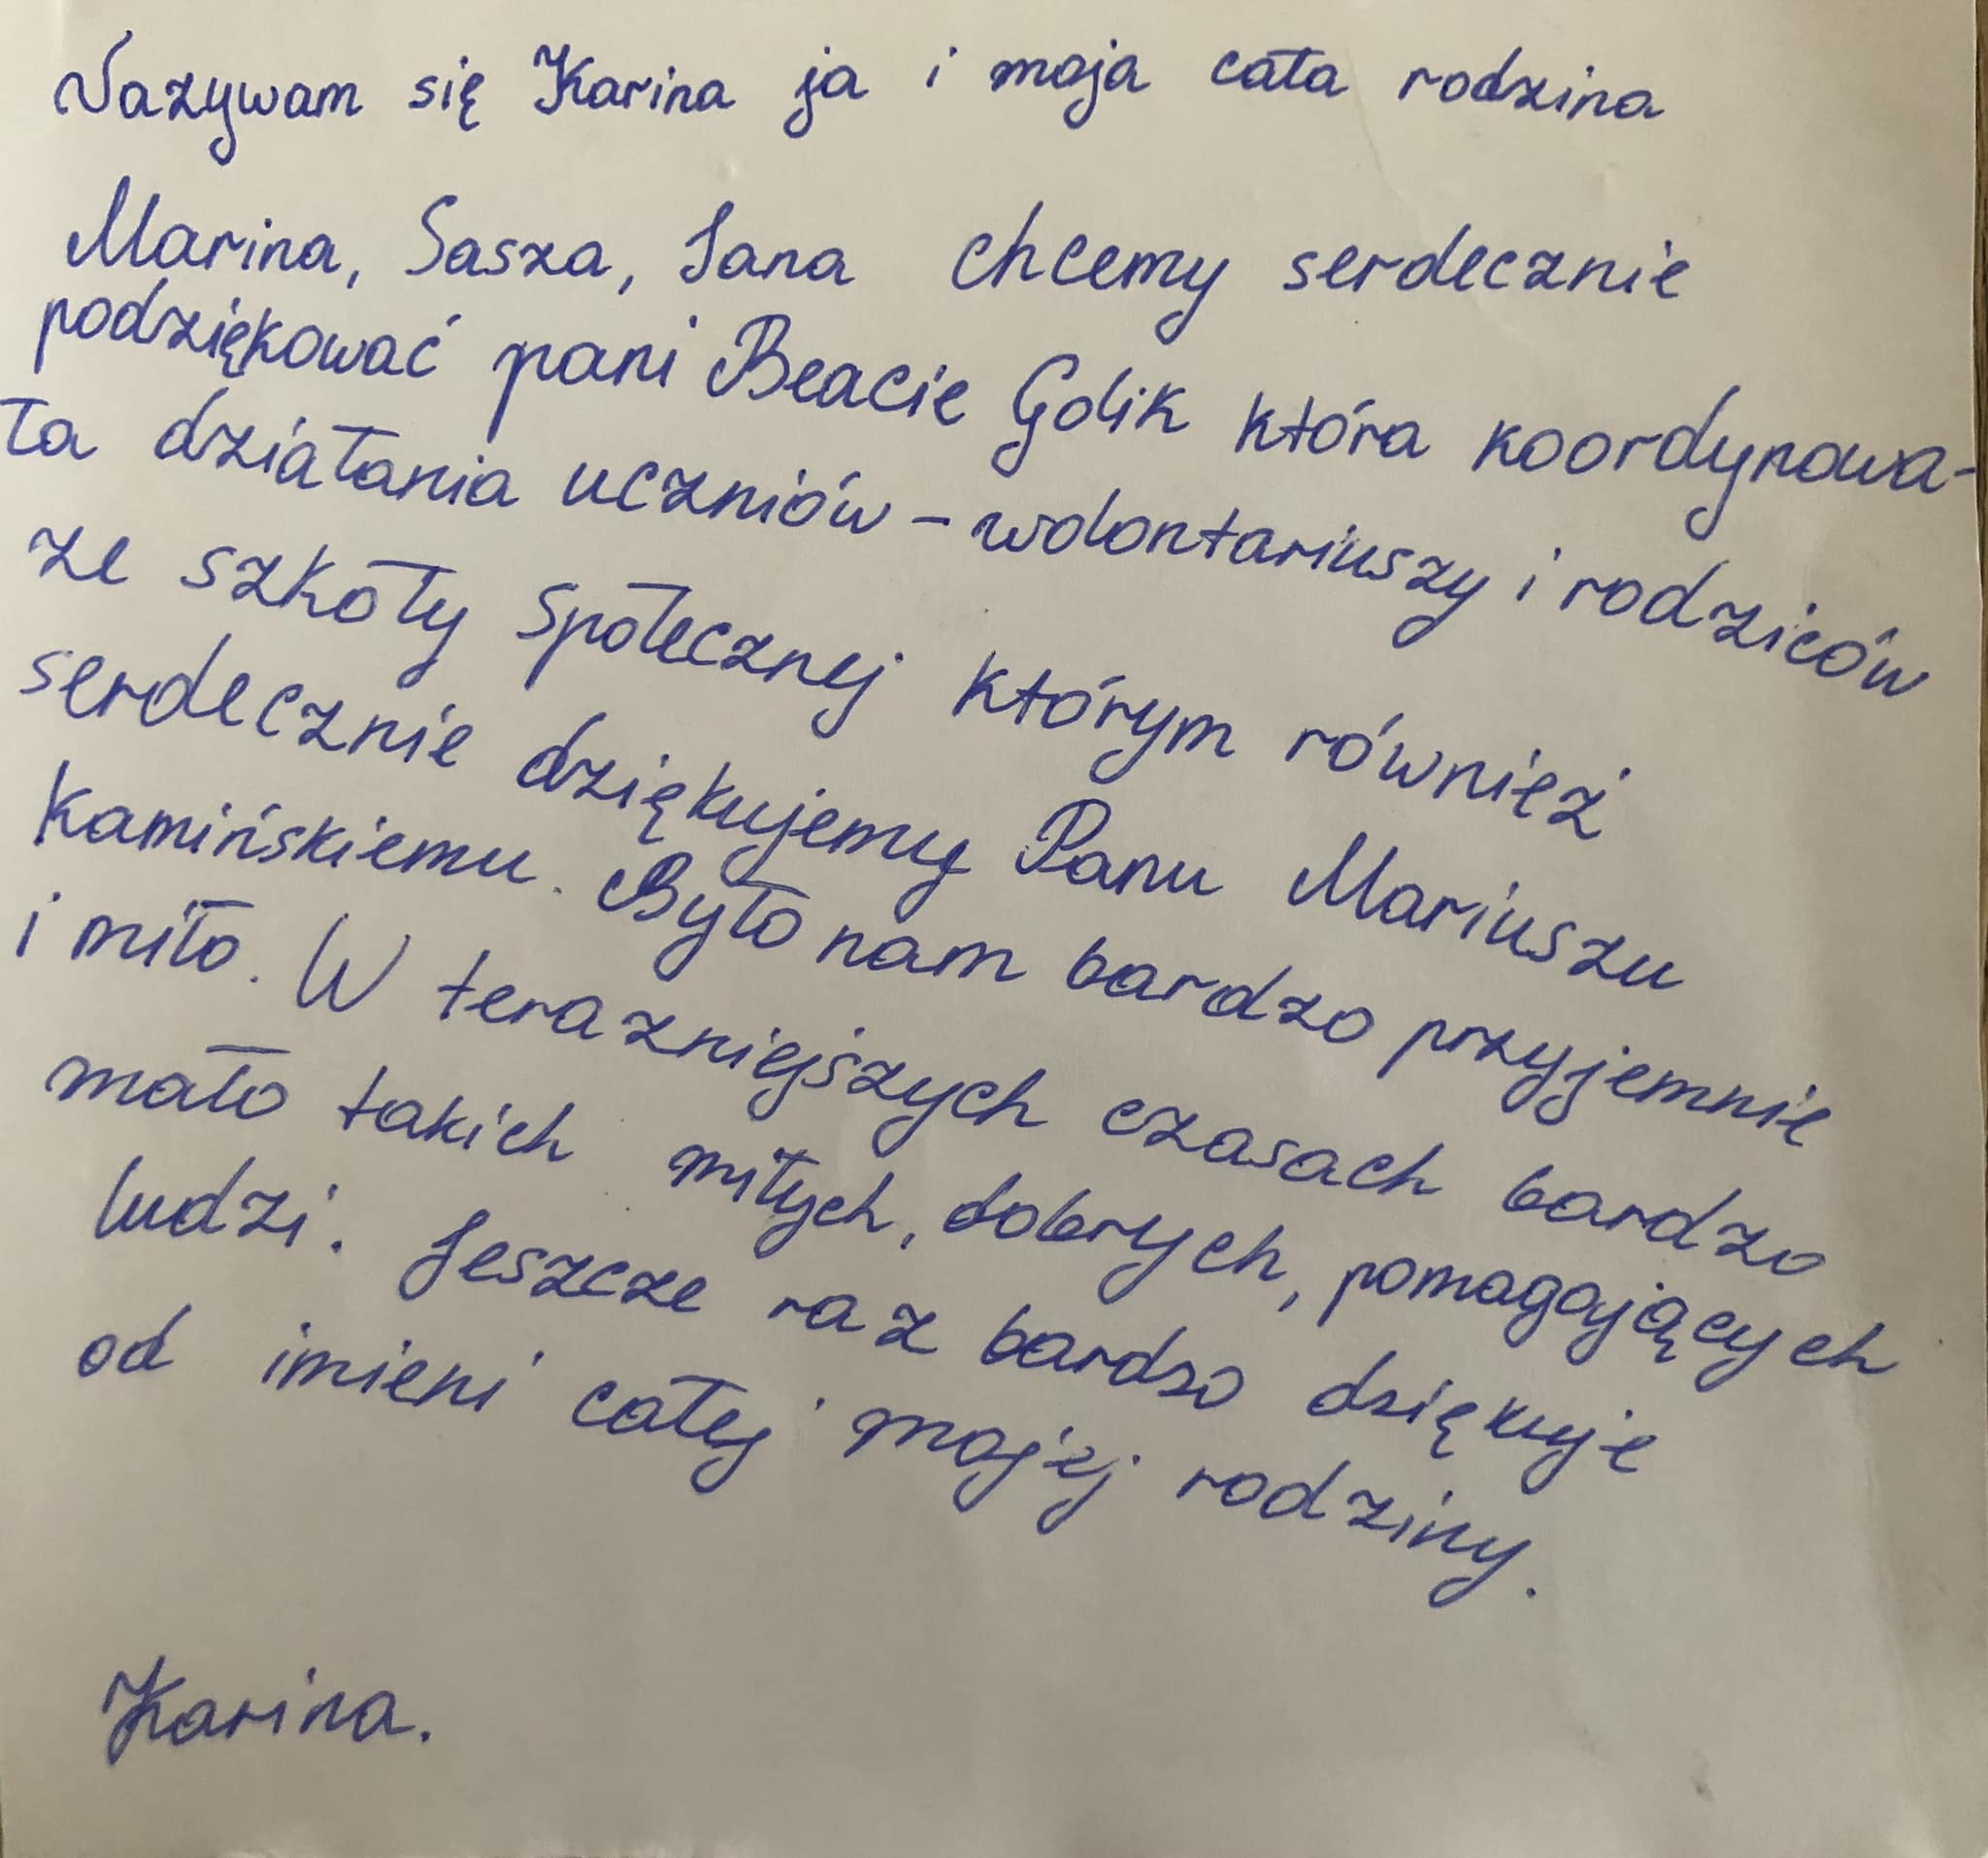 Nazywam się Karina ja i moja cała rodzina
Marina, Sasza, Jana chcemy serdecznie
podziękować pani Beacie Golik która koordynowa-
ła działania uczniów - wolontariuszy i rodziców
ze szkoły Społecznej którym również
serdecznie dziękujemy Panu Mariuszu
Kamińskiemu. Było nam bardzo przyjemnie
i miło. W terazniejszych czasach bardzo
mało takich miłych, dobrych, pomagających
ludzi. Jeszcze raz bardzo dziękuje
od imieni całej mojej rodziny.
Karina.